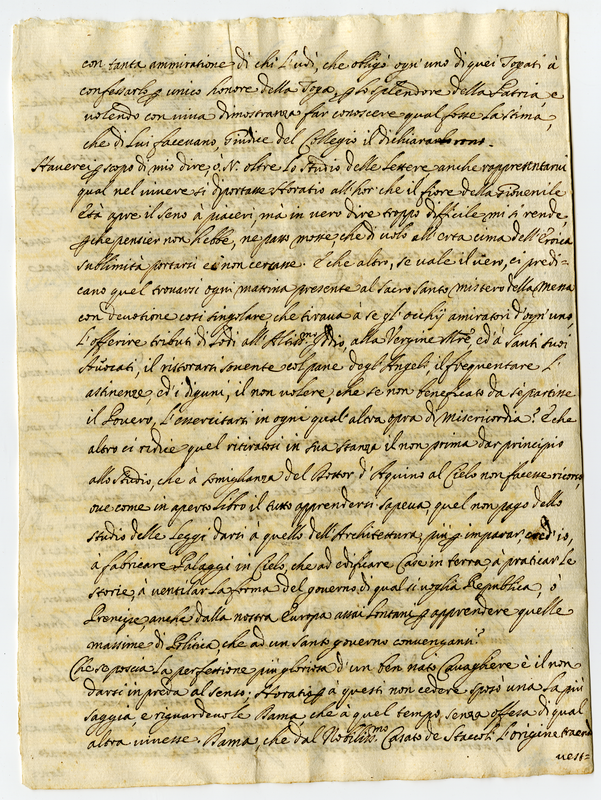 con tanta ammiratione di chi l'udì, che obligò ogn'uno di quei Togati à
confessarlo p unico honore della Toga, p lo splendore della Patria, e
volendo con viva dimostranza far conoscere qual fosse la stima,
che di lui facevano, Giudice del Collegio il dichiararono.
Haverei p scopo di mio dire, ò N. oltre lo studio delle Lettere anche rappresentarvi
qual nel vivere si diportasse Horatio all'hor che il fiore della Giovenile
Età apre il seno à piaceri, mà in vero dire troppo difficile mi si rende
pche pensier non hebbe, ne passo mosse, che di volo all'erta cima dell'Eroica
sublimità portarsi ei non cercasse. E che altro, se vale il vero, ci predi=
cano quel trovarsi ogni mattina presente al Sacro Santo mistero della Messa
con devotione così singolare che tirava à se gl'occhij amiratori d'ogn'uno,
l'offerire tributi di lodi all'Altissmo Iddio, alla Vergine Mre, ed à Santi suoi
Avocati, il ristorarsi sovente col pane degl'Angeli, il frequentare l'
astinenze, ed i digiuni, il non volere, che se non beneficato da se partisse
il Povero, l'essercitarsi in ogni qual altra opra di misericordia? E che
altro ci ridice quel ritirarsi in sua stanza il non prima dar principio
allo studio, che à somiglianza del Dottor d'Aquino al Cielo non facesse ricorso,
ove come in aperto libro il tutto apprendersi sapeva, quel non pago dello
studio delle Leggi darsi à quello dell'Architettura, più p imparar, cred'io,
a fabricare Palaggi in Cielo, che ad edificare Case in terra, à praticar le
storie, à ventilar la forma del governo di qual si voglia Republica, ò
Prencipe anche dalla nostra Europa assai lontani p apprendere quelle
massime di Politica, che ad un santo governo convenganti?
Che se poscia la perfettione più gloriosa d'un ben nato Cavagliere è il non
darsi in preda al senso, Horatio p a questi non cedere sposò una la più
saggia, e riguardevole Dama, che à quel tempo, senza offesa di qual
altra vivesse. Dama, che dal Nobilissmo Casato de Staccoli l'origine traendo